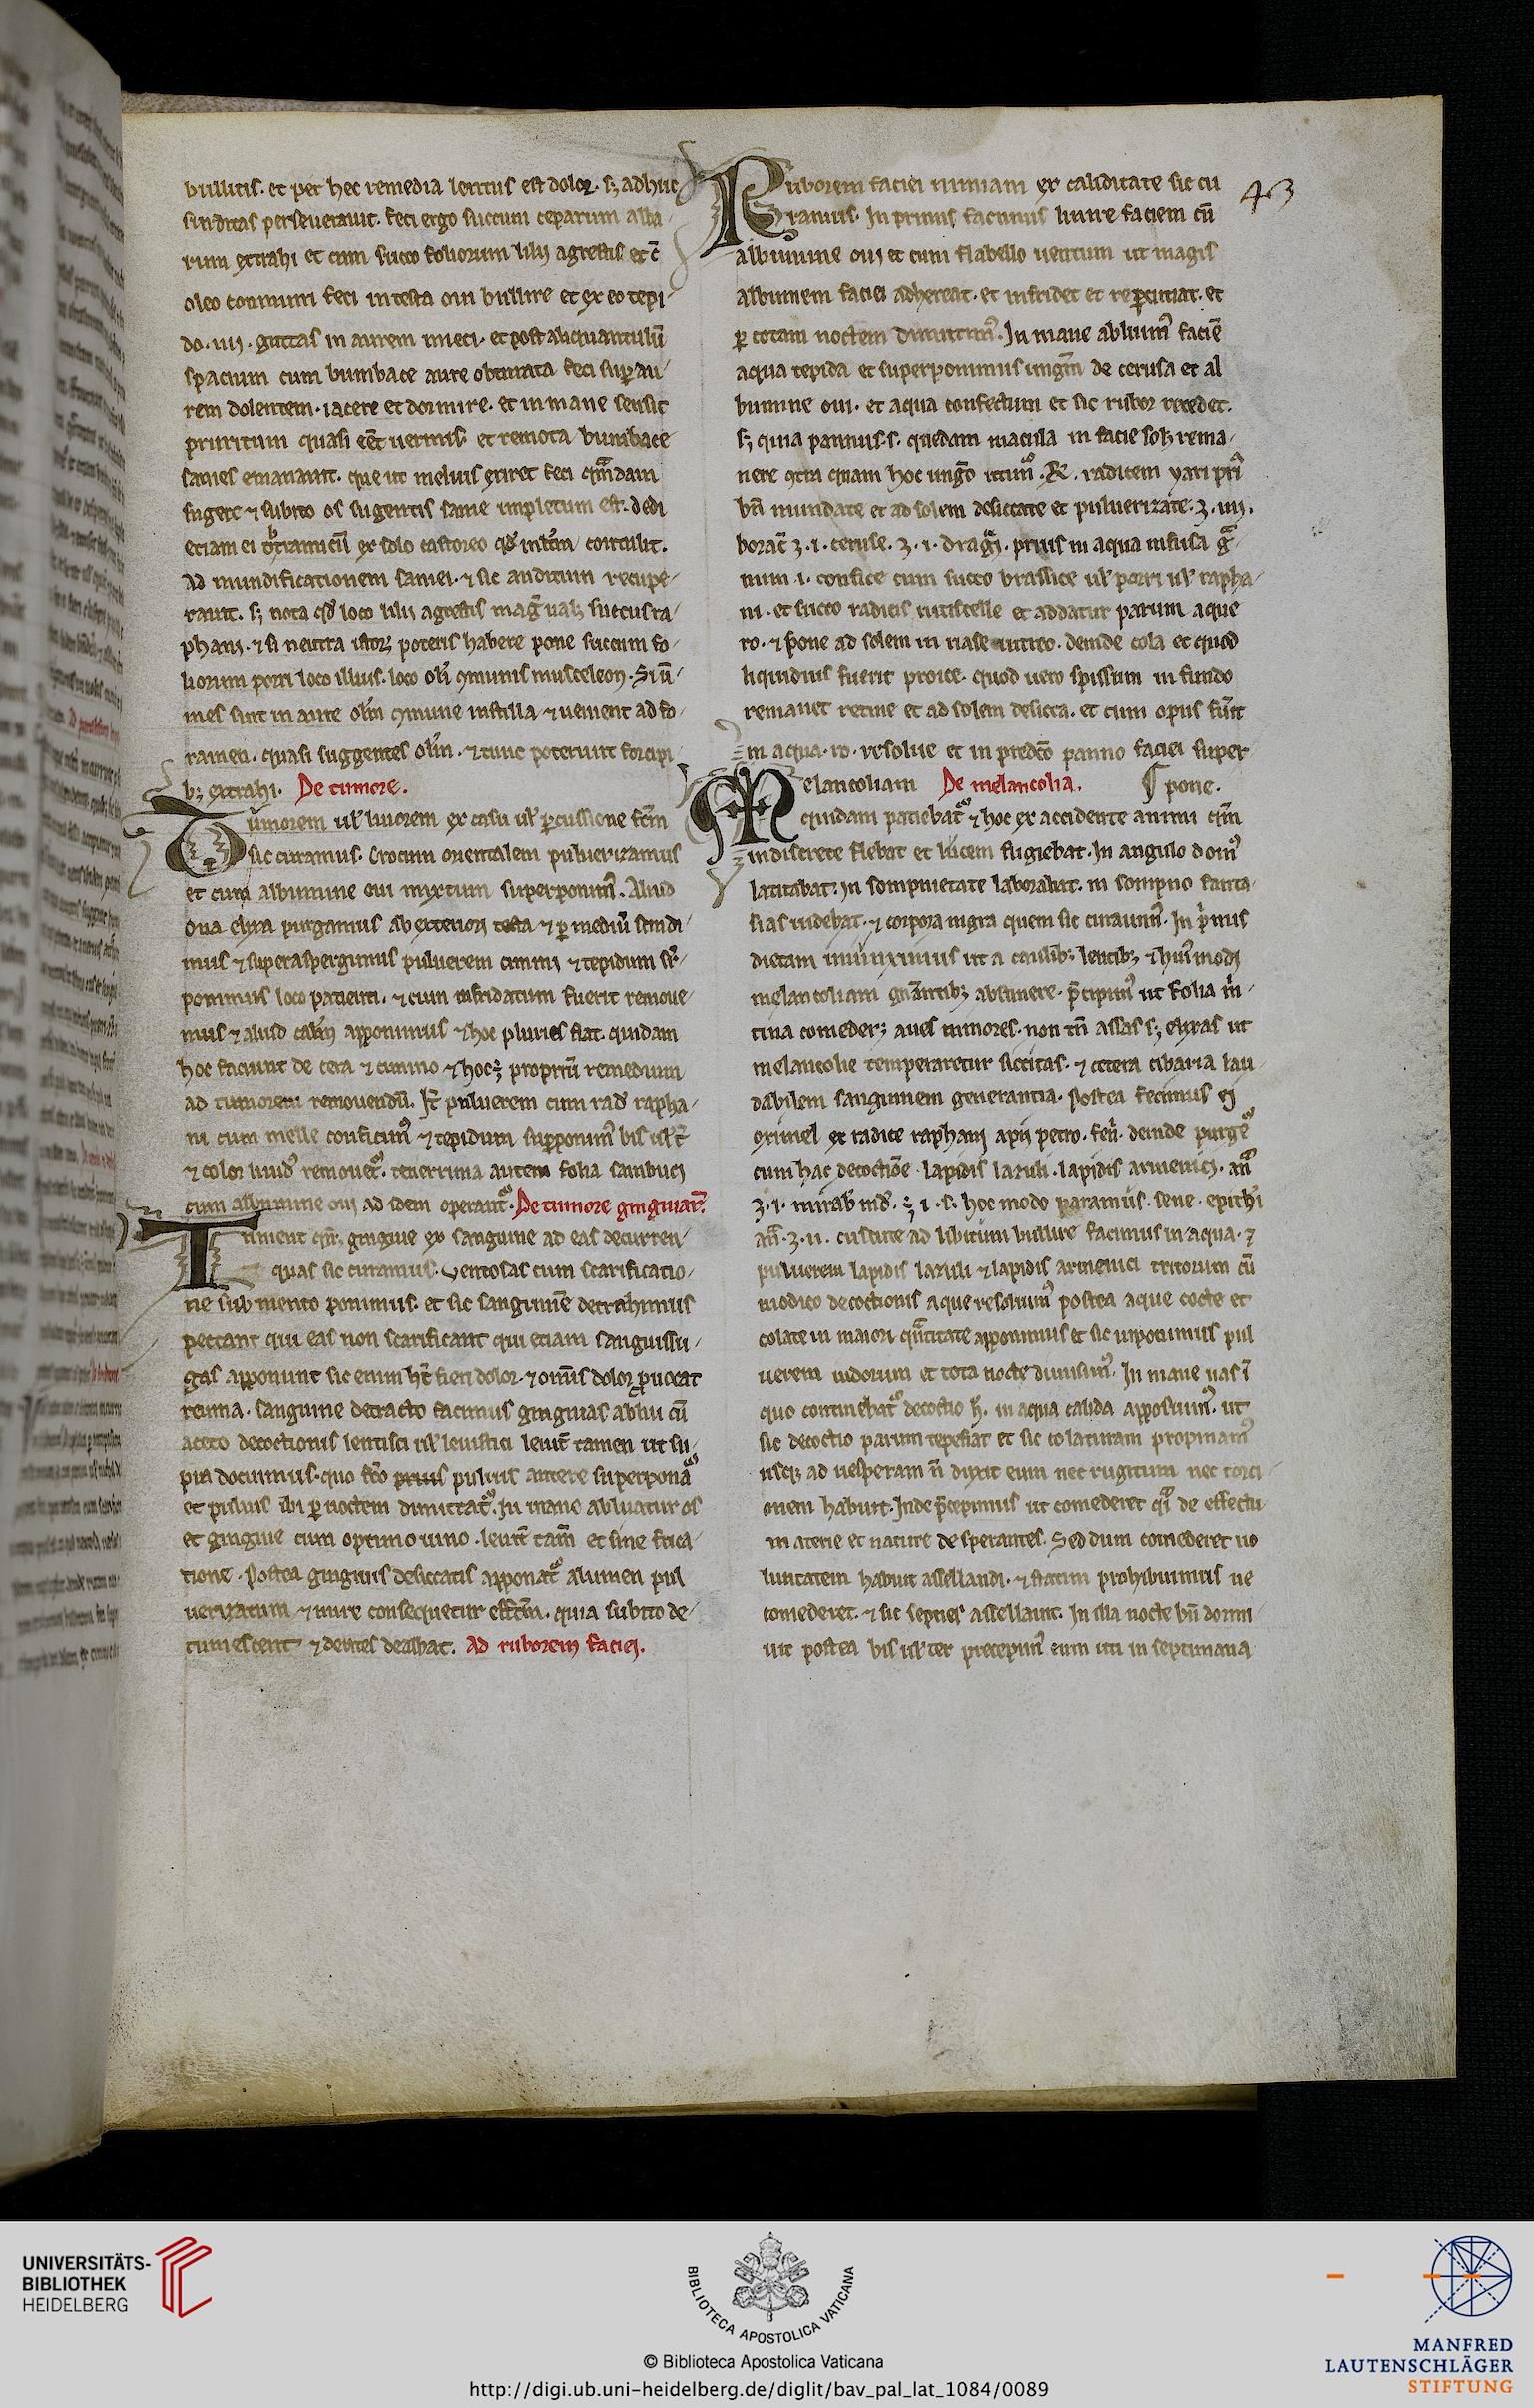 bullitis. et per hec remedia lenitus est dolor. sꝫ adhuc
surditas perseuerauit. feci ergo succum ceparum alba-
rum extrahi et cum succo foliorum lilij agrestis et c̄
oleo communi feci in testa oui bullire et ex eo tepi-
do .iiij. guttas in aurem inieci. et post aliquantulū
spacium cum bumbace aure obturata feci suꝑ au-
rem dolentem. iacere et dormire. et in mane sensit
pruritum quasi eēt uermis. et remota bumbace
sanies emanauit. que ut melius exiret feci
sugere ⁊ subito os sugentis sanie impletum est. dedi
etiam ei ex solo castoreo contulit.
Ad mundificationem saniei. ⁊ sic auditum recupe-
rauit. sꝫ nota qđ loco lilij agrestis succus ra-
phani. ⁊ si neutra istoꝝ poteris habere pone succum fo-
liorum porri loco illius. loco olī ꝯmunis musceleon. Si ū-
mes sint in aure olm̄ ꝯmune instilla ⁊ uenient ad fo-
ramen. quasi suggentes olm̄. ⁊ tunc poterunt forcipi
bꝫ extrahi. De tumore.
Tumorem uł liuorem ex casu uł ꝑcussione fc̄m
sic curamus. Crocum orientalem puluerizamus
et cum albumine oui mixtum superponimꝰ. Aliud
oua elixa purgamus ab exteriori testa ⁊ ꝑ mediū scindi-
mus ⁊ superaspergimus puluerem cimini ⁊ tepidum
ponimus loco patienti. ⁊ cum infridatum fuerit remoue-
mus ⁊ aliud apponimus ⁊ hoc pluries fiat. quidam
hoc faciunt de cera ⁊ cimino ⁊ hoc proprium remedium
ad tumorem remouendū. Iť puluerem cum rad raphа-
ni cum melle conficimꝰ ⁊ tepidum suꝑponimꝰ bis uł ť
⁊ color liuidꝰ remouet᷑. tenerrima autem folia sambuci
cum albumine oui ad idem operant᷑. De tumore gingiuaꝝ.
Tument gingiue ex sanguine ad eas decurren-
quas sic curamus. Ventosas cum scarificatio-
ne sub mento ponimus. et sic sanguinē detrahimus
peccant qui eas non scarificant qui etiam sanguissu-
gas apponunt sic enim fieri dolor. ⁊ omīs dolor ꝓuocat
reuma. sanguine detracto facimus gingiuas ablui cū
aceto decoctionis lentisci uł leuistici leuiť tamen ut su-
pra docuimus. quo fc̄o prius puluis superponat᷑
et puluis ibi ꝑ noctem dimittat᷑. In mane abluatur os
et gingiue cum optimo uino. leuiť tam̄ et sine frica-
tione. Postea gingiuis desiccatis apponat᷑ alumen pul
uerizatum ⁊ mire consequetur effc̄m. quia subito de-
tumescent ⁊ dentes dealbat. Ad ruborem faciei.
43
Ruborem faciei nimiam ex caliditate sic cu
ramus. In primis facimus linire faciem cū
albumine oui et cum flabello uentum ut magis
albumem faciei adhereat. et infridet et reꝑcutiat. et
ꝑ totam noctem dimittimꝰ. In mane abluimꝰ faciē
aqua tepida et superponimus ungm̄ de cerusa et al
bumine oui. et aqua confectum et sic rubor recedet.
sꝫ quia pannus .s. quedam macula in facie solꝫ rema-
nere ꝯtra quam hoc ungō utimꝰ. ℞. radicem yari
bn̄ mundate et ad solem desiccate et puluerizate. ʒ. iiij.
borac̄ ʒ .i. ceruse. ʒ .i. prius in aqua infusa
num .i. confice cum succo brassice uł porri uł rapha-
ni. et succo radicis et addatur parum aque
ro. ⁊ pone ad solem in uase uitreo. deinde cola et quod
liquidius fuerit proice. quod uero spissum in fundo
remanet retine et ad solem desicca. et cum opus fūit
in aqua. ro. resolue et in predc̄o panno faciei super
Melancoliam De melancolia. ¶ pone.
quidam patiebat᷑ ⁊ hoc ex accidente animi
indiscrete flebat et lucem fugiebat. In angulo domꝰ
latitabat. in sompnietate laborabat. in sompno fanta-
sias uidebat. ⁊ corpora nigra quem sic curauimꝰ. In primis
dietam iniunximus ut a caulibꝫ lentibꝫ ⁊ huiꝰmodi
melancoliam gnāntibꝫ abstinere. p̄cipimꝰ ut folia
tina comederꝫ aues minores. non tn̄ assas sꝫ elixas ut
melancolie temperaretur siccitas. ⁊ cetera cibaria lau-
dabilem sanguinem generantia. Postea fecimus ei
oximel ex radice raphani apij petro. fen̄. deinde
cum hac decoctiōe. lapidis lazuli. lapidis armenici. an̄
ʒ. i. mirab ind. ʒ i. s. hoc modo paramus. sene. epithi
an̄. ʒ. ii. cuscute ad libitum bullire facimus in aqua. ⁊
puluerem lapidis lazuli ⁊ lapidis armenici tritorum cū
modico decoctionis aque resoluimꝰ postea aque cocte et
colate in maiori quantitate apponimus et sic pul
uerem et tota nocte dimisimꝰ. In mane uas ī
quo continebat᷑ decoctio in aqua calida apposuimꝰ. ut
sic decoctio parum tepefiat et sic colaturam propinamꝰ
usqꝫ ad uesperam n̄ duxit eum nec rugitum nec torci-
onem habuit. Inde p̄cepimus ut comederet de effectu
materie et nature desperantes. Sed dum comederet uo
luntatem habuit assellandi. ⁊ statim prohibuimus ne
comederet. ⁊ sic septies assellauit. In illa nocte bn̄ dormi-
uit postea bis uł ter precepimꝰ eum uti in septimana
UNIVERSITÄTS-
BIBLIOTHEK
HEIDELBERG
BIBLIOTECA APOSTOLICA VATICANA
© Biblioteca Apostolica Vaticana
http://digi.ub.uni-heidelberg.de/diglit/bav_pal_lat_1084/0089
MANFRED
LAUTENSCHLÄGER
STIFTUNG